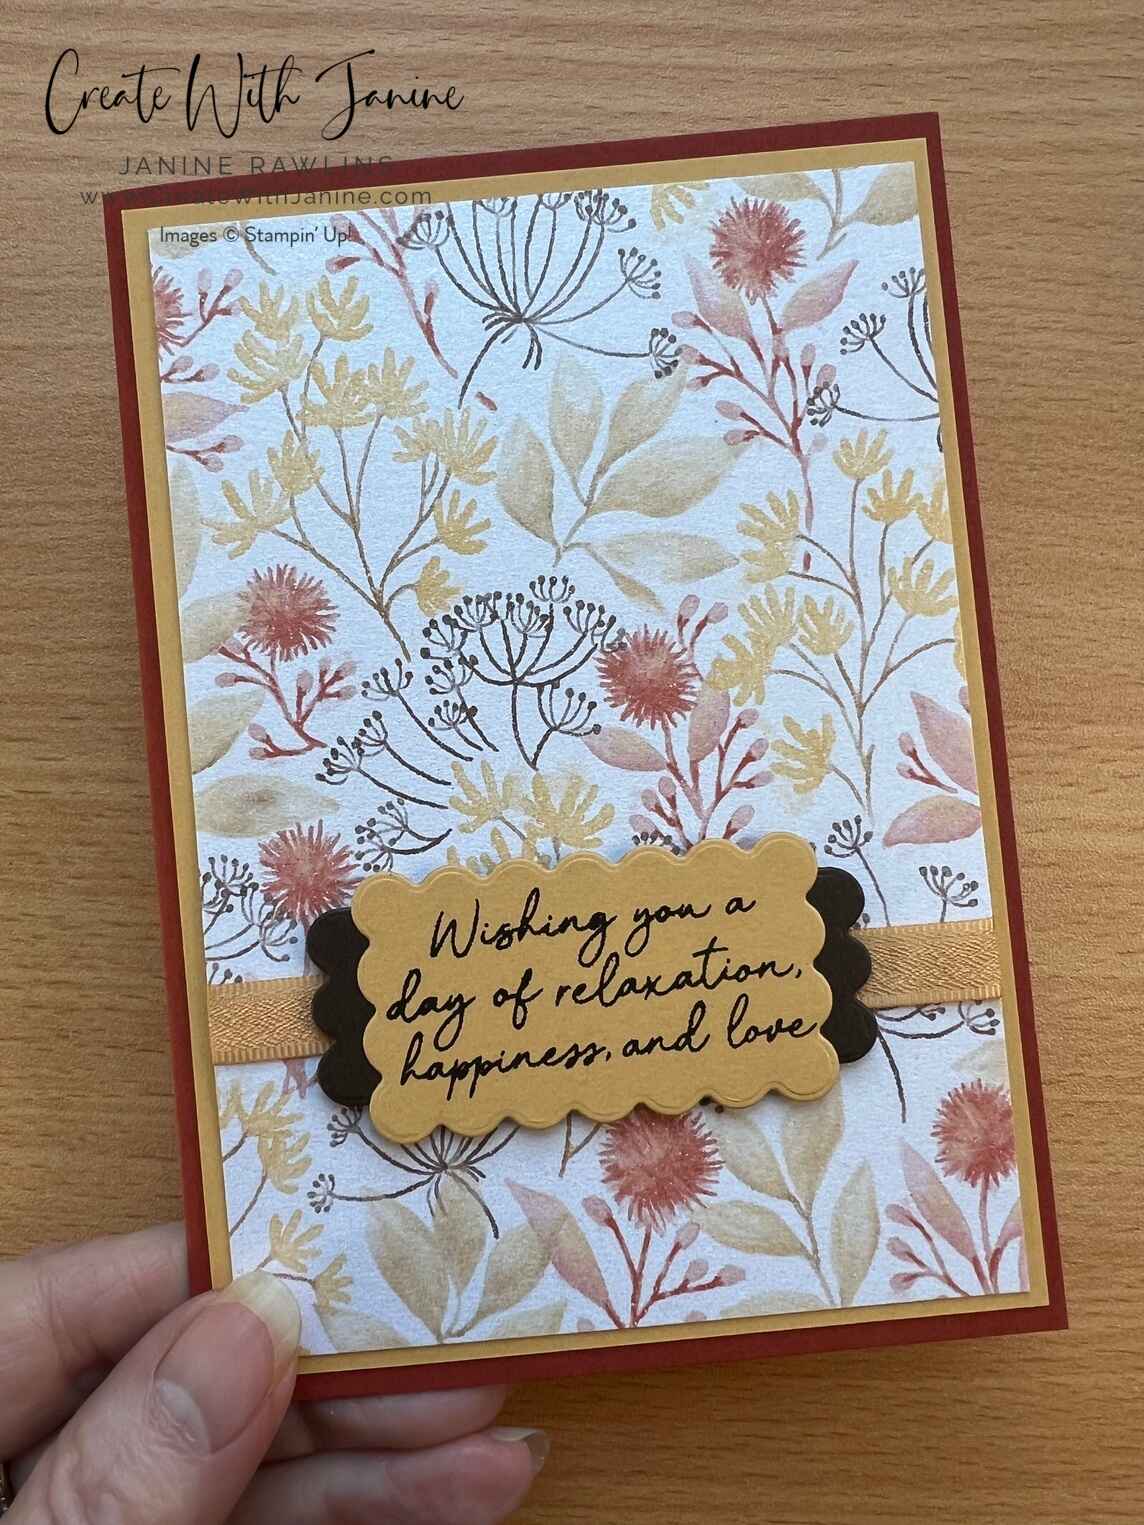 Create With Janine
JANINE RAWLINS
www.CreateWithJanine.com
Images © Stampin' Up!
Wishing you a
day of relaxation,
happiness, and love